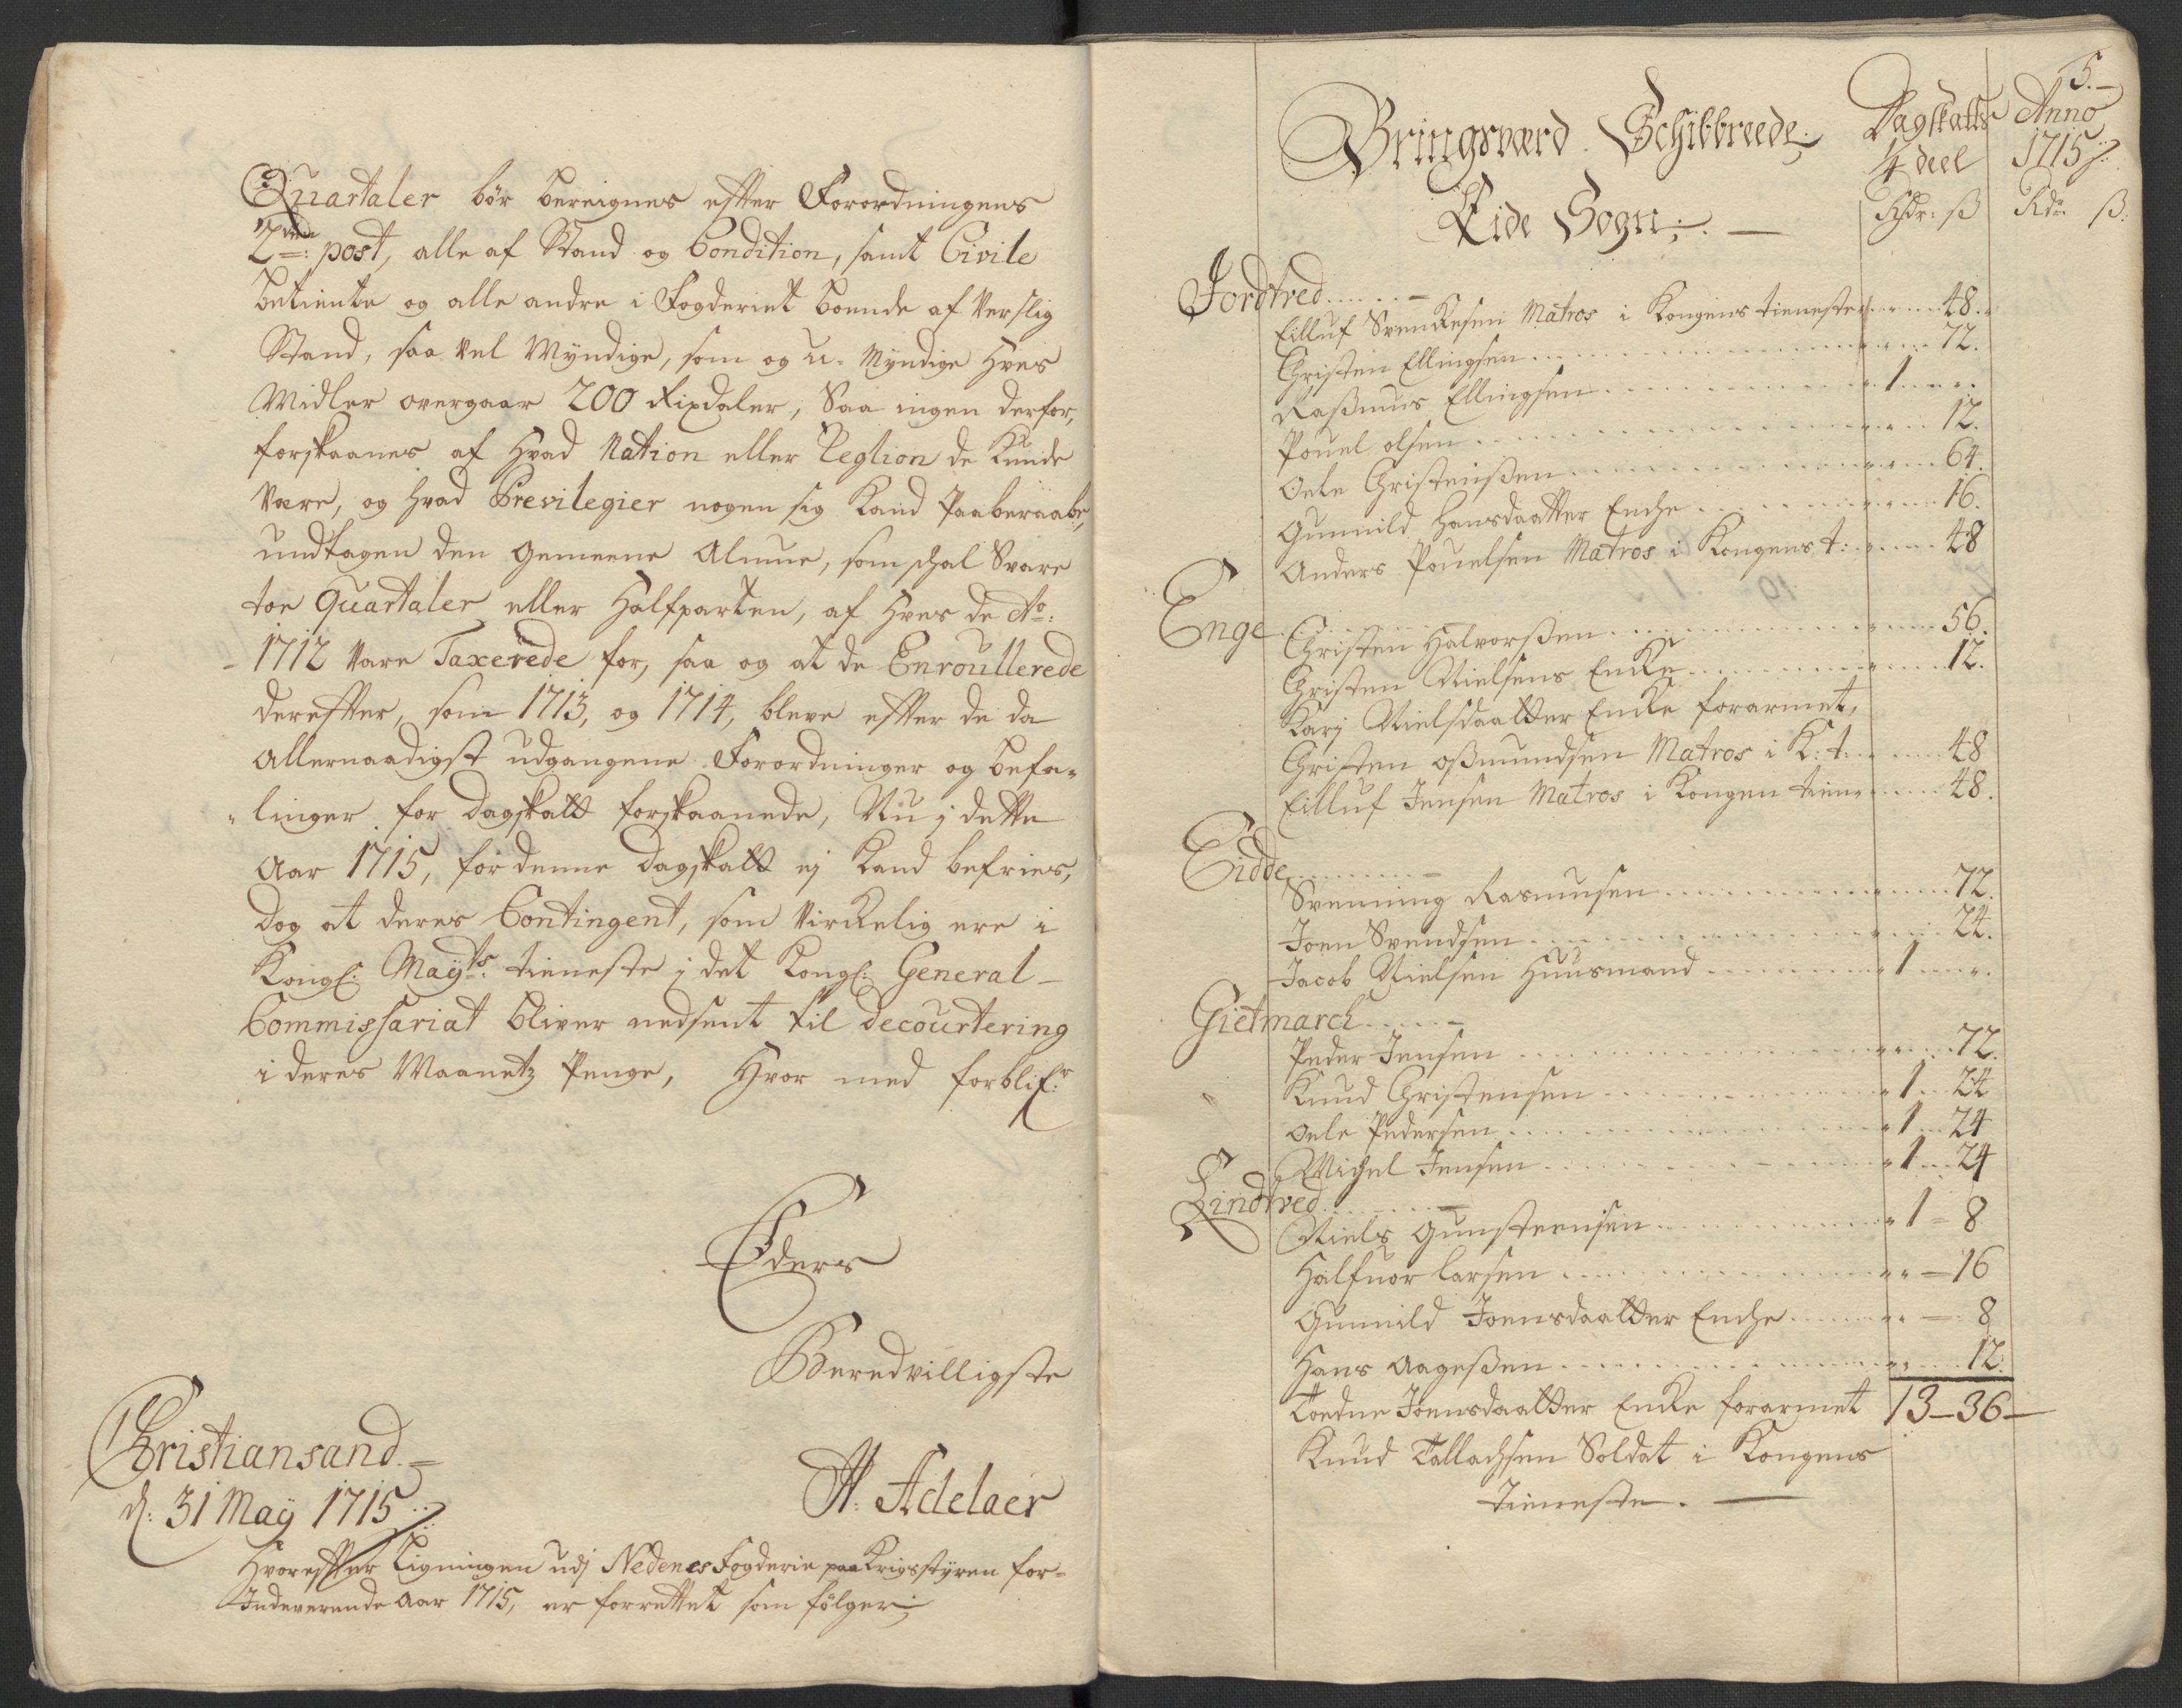 Quartaler bør bereignes effter Forordningens
2den: post, alle af Stand og Condition, samt Civile
betiente og alle andre i Fogderiet boende af Verslig
Stand, saa vel Myndige, som og u-Myndige hves
Midler overgaar 200 Rixdaler, Saa ingen derfor,
forskaanes af hvad Nation eller Reglion de kunde
være, og hvad Previlegier nogen sig kand Paaberaabe,
undtagen den gemeene Almue, som schal Svare
toe Quartaler eller Halfparten, af hves de Ao:
1712 vare Taxerede for, saa og at de Enroullerede
dereffter, som 1713, og 1714, bleve effter de da
allernaadigst udgangene Forordninger og befa-
linger for dagskatt forskaanede, Nu j dette
Aar 1715, for denne dagskatt ej kand befries,
dog at deres Contingent, som virkelig ere i
Kongl: Mayts: tieneste j det Kongl: General-
Commissariat bliver nedsent til decourtering
i deres Maanetz Penge, Hvor med forblifr:
Eders
Beredvilligste
Christiansand
d: 31 May 1715
H: Adelaer
Hvoreffter Ligningen udj Nedenes Fogderie paa Krigsstyren for-
Indeverende Aar 1715, er forrettet som følger;
5.
Bringsværd Schibbreede; Dagskatts Anno
4 deel 1715
Eide Sogn; Rdr: ß Rdr ß:
Jordtved
Eilluf Svenkesen Matros i Kongens tieneste 48.
Christen Ellingsen 72.
Rasmus Ellingsen 1
Pouel olsen 12.
Oele Christenßen 64.
Gunnild Hansdaatter Enche 16.
Anders Pouelsen Matros i Kongens t: 48
Enge
Christen Halvorßen 56.
Christen Nielsens Enke 12.
Karj Nielsdaatter Enke forarmet,
Christen oßmundsen Matros i K: t: 48
Eilluf Jensen Matros i Kongen tien 48.
Eidde
Svenning Rasmusen 72.
Joen Svendsen 24.
Jacob Nielsen Huusmand 1
Gietmarch
Peder Jensen 72.
Knud Christensen 1 24
Oele Pedersen 1 24
Michel Jensen 1 24
Lindtved
Niels Gunstensen 1 - 8
Halfuor larsen - 16
Gunnild Joensdaatter Enche - 8
Hans Aageßen 12.
Toedne Joensdaatter Enke forarmet 13 - 36
Knud Tallachsen Soldat i Kongens
Tieneste.